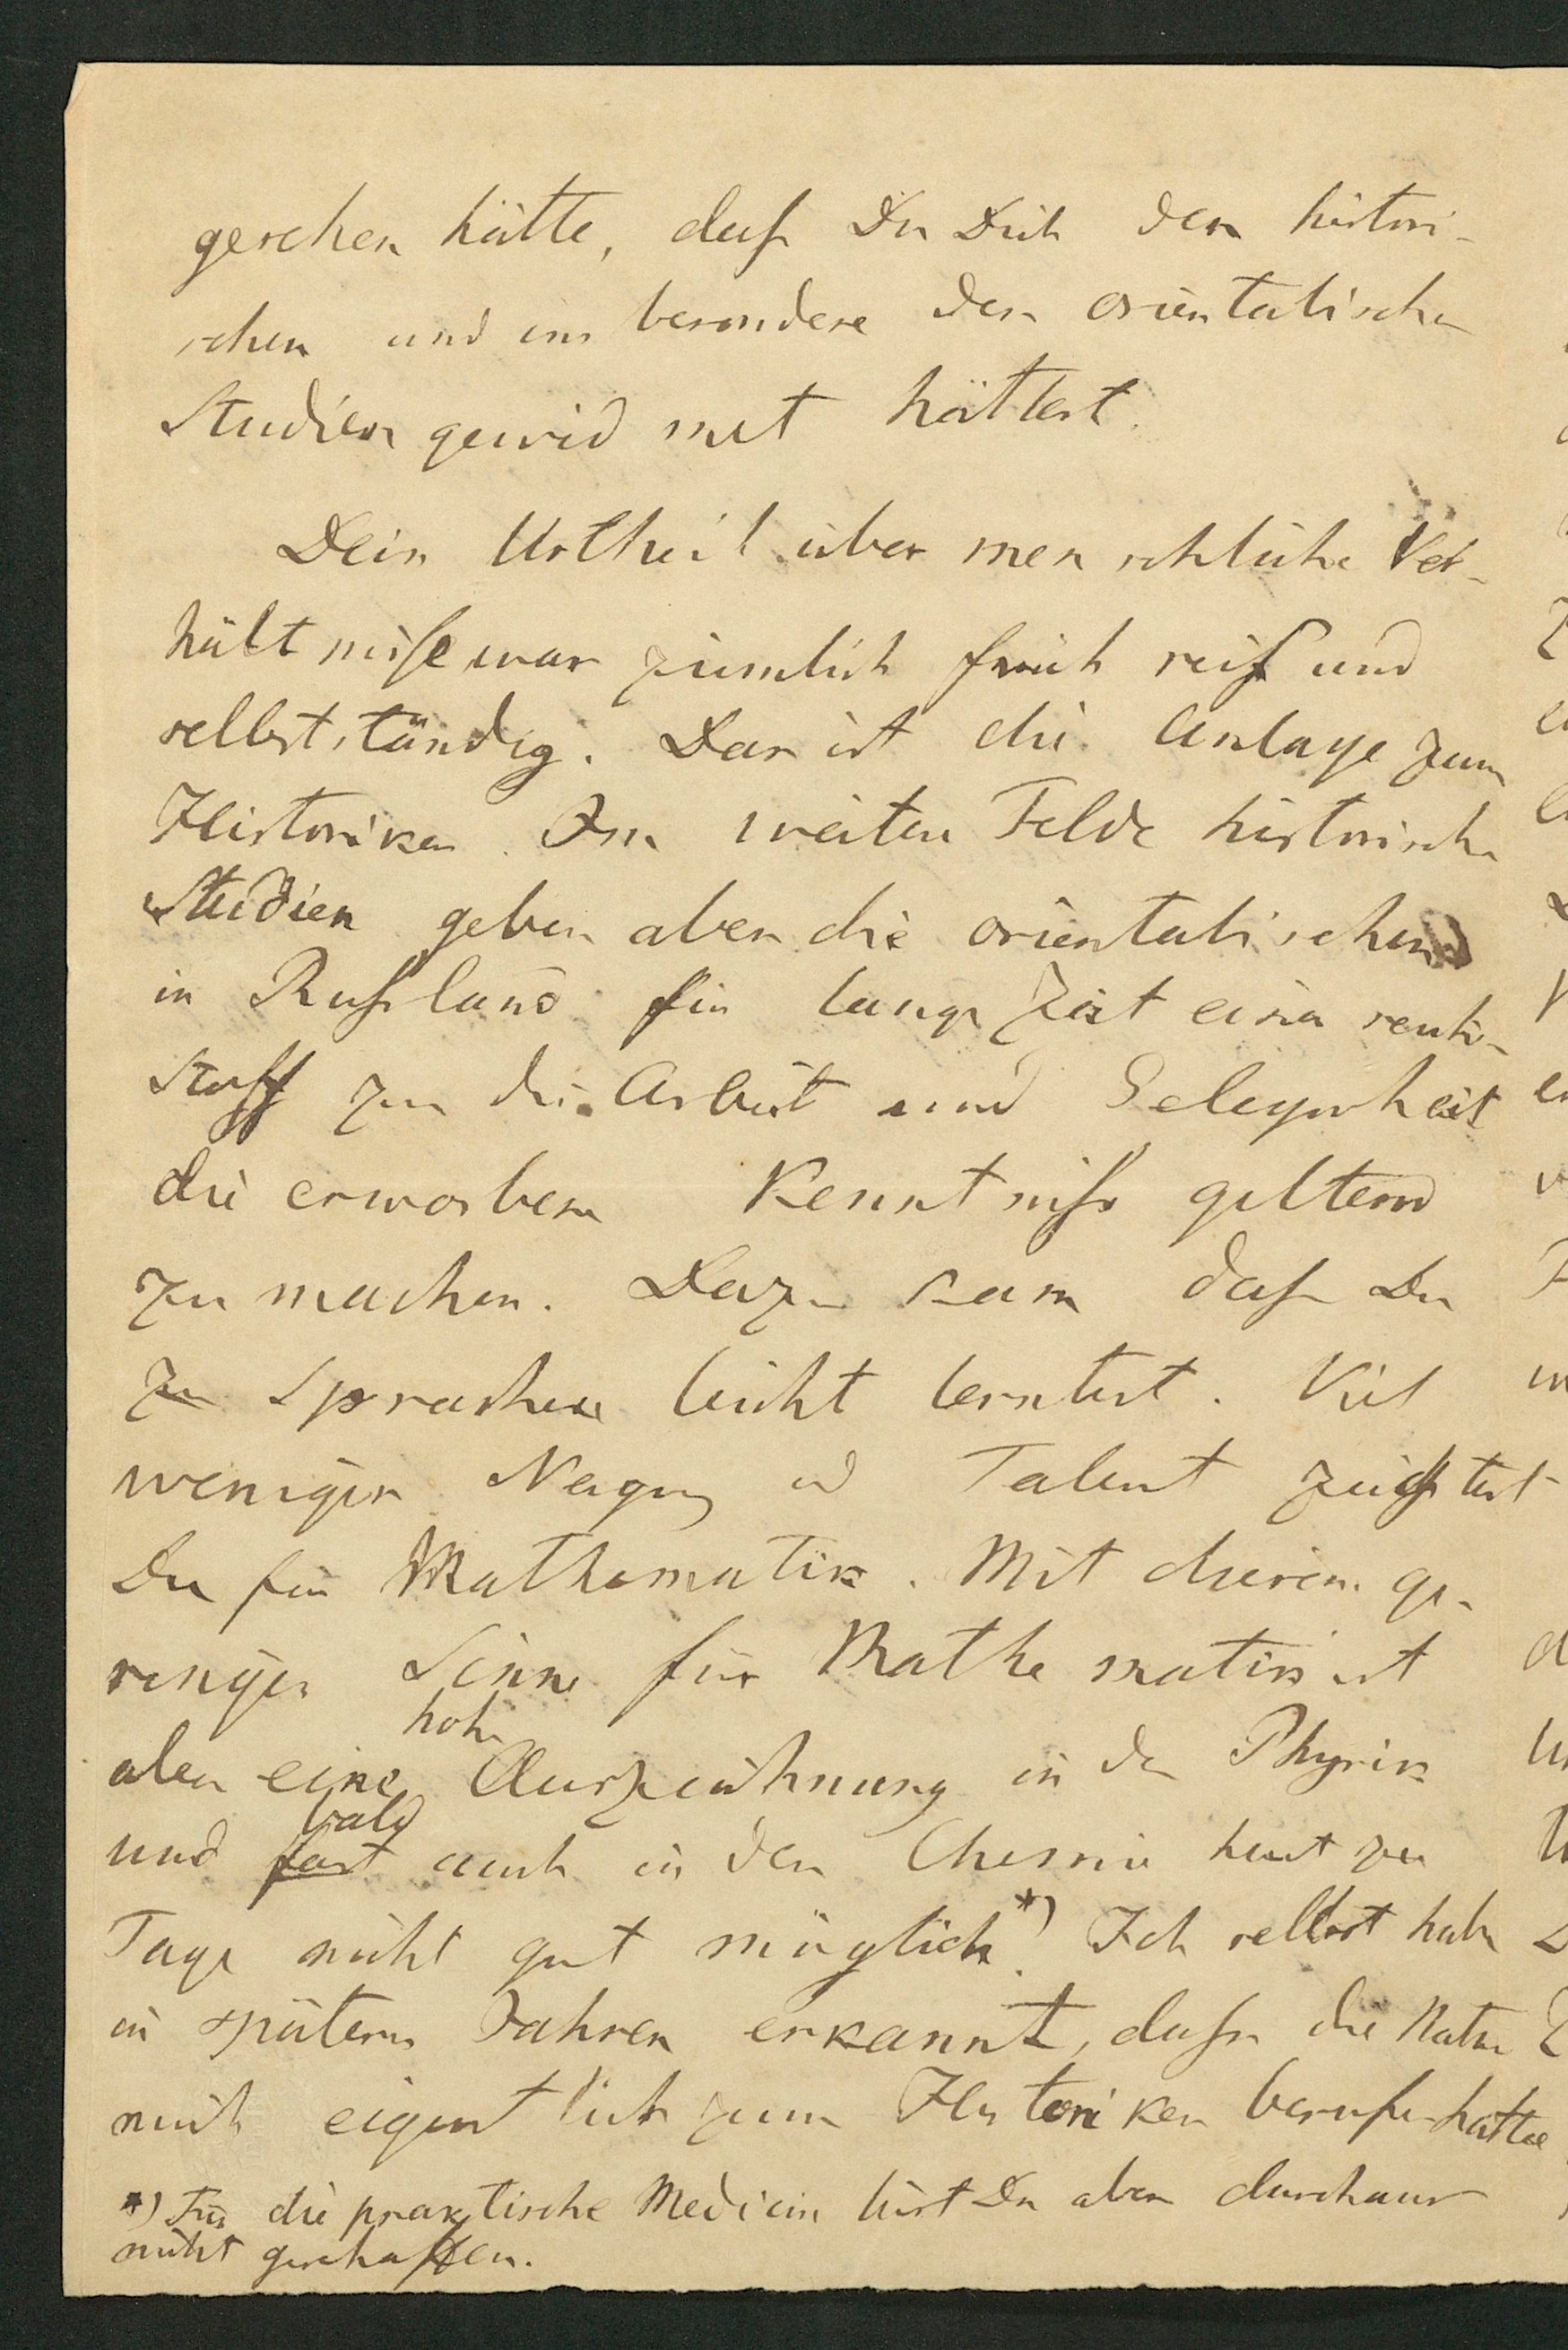 gesehen hätte, daß Du Dich den histori-
schen und ins besondere den orientalischen
Studien gewidmet hättest.
Dein Urtheil über menschliche Ver-
hältniße war ziemlich früh reif und
selbstständig. Das ist die Anlage zum
Historiker. Im weiten Felde historischer
Studien geben aber die orientalischen
in Rußland für lange Zeit einen reichen
Stoff zu die Arbeit und Gelegenheit
die erworbene Kenntniß geltend
zu machen. Dazu kam daß Du
zu Sprachen leicht lerntest. Viel
weniger Neigung u Talent zeigtest
Du für Mathematik. Mit diesem ge-
ringen Sinne für Mathematik ist
hohe
aber eine Auszeichnung in der Physik
bald
und fast auch in der Chemie heut zu
Tage nicht gut möglich*). Ich selbst habe
in spätern Jahren erkannt, daß die Natur
mich eigentlich zum Historiker berufen hatte
*) Für die praktische Medicin bist Du aber durchaus
nicht geschaffen.